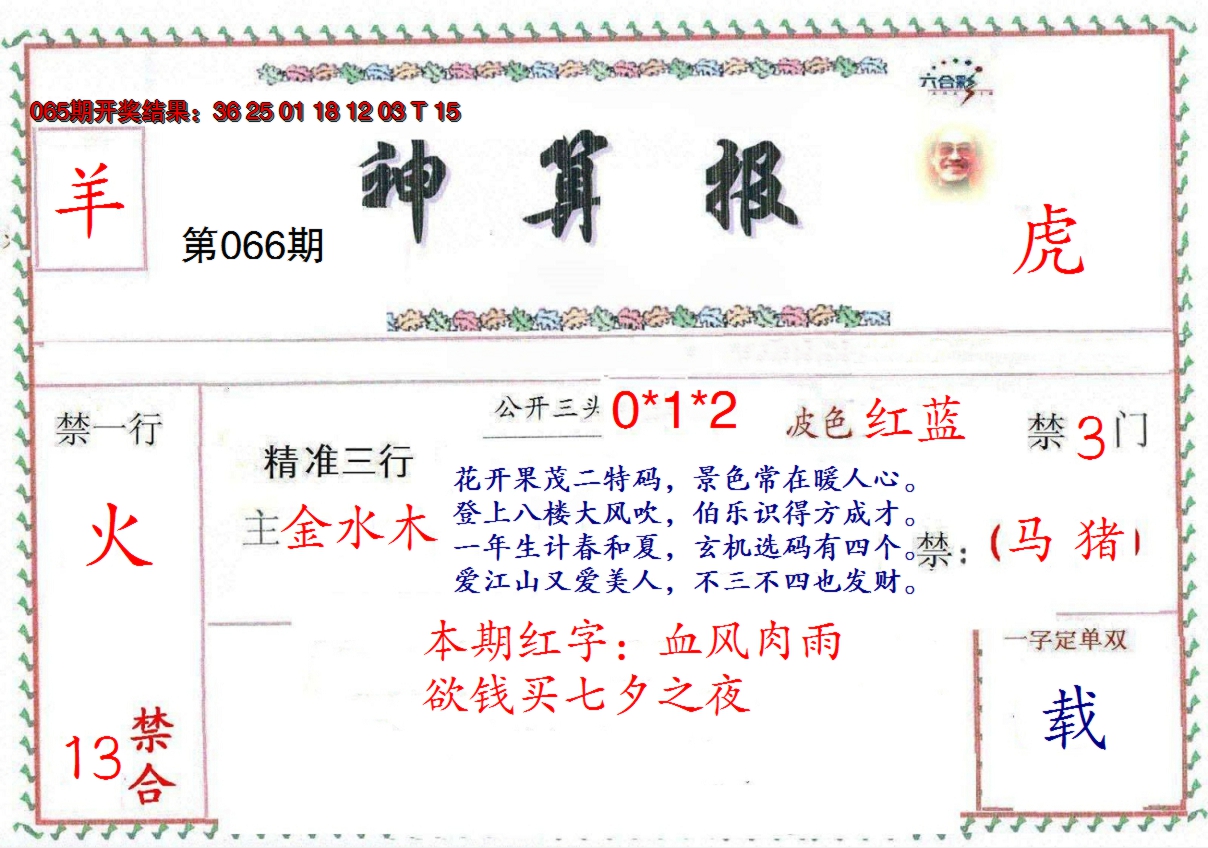 六合彩
065期开奖结果：36 25 01 18 12 03 T 15
神算报
羊
第066期
虎
禁一行
火
13
禁合
精准三行
主金水木
公开三头 0*1*2
波色 红蓝
禁3门
花开果茂二特码，景色常在暖人心。
登上八楼大风吹，伯乐识得方成才。
一年生计春和夏，玄机选码有四个。
爱江山又爱美人，不三不四也发财。
禁：（马 猪）
本期红字：血风肉雨
欲钱买七夕之夜
一字定单双
载